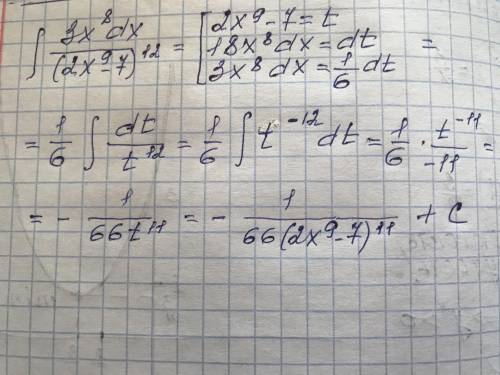 ∫ 3x⁸dx/(2x⁹-7)¹² = [2x⁹-7=t
18x⁸dx=dt
3x⁸dx=1/6 dt =
= 1/6 ∫ dt/t¹² = 1/6 ∫ t⁻¹² dt = 1/6 · t⁻¹¹/-11 =
= - 1/66t¹¹ = - 1/66(2x⁹-7)¹¹ + C